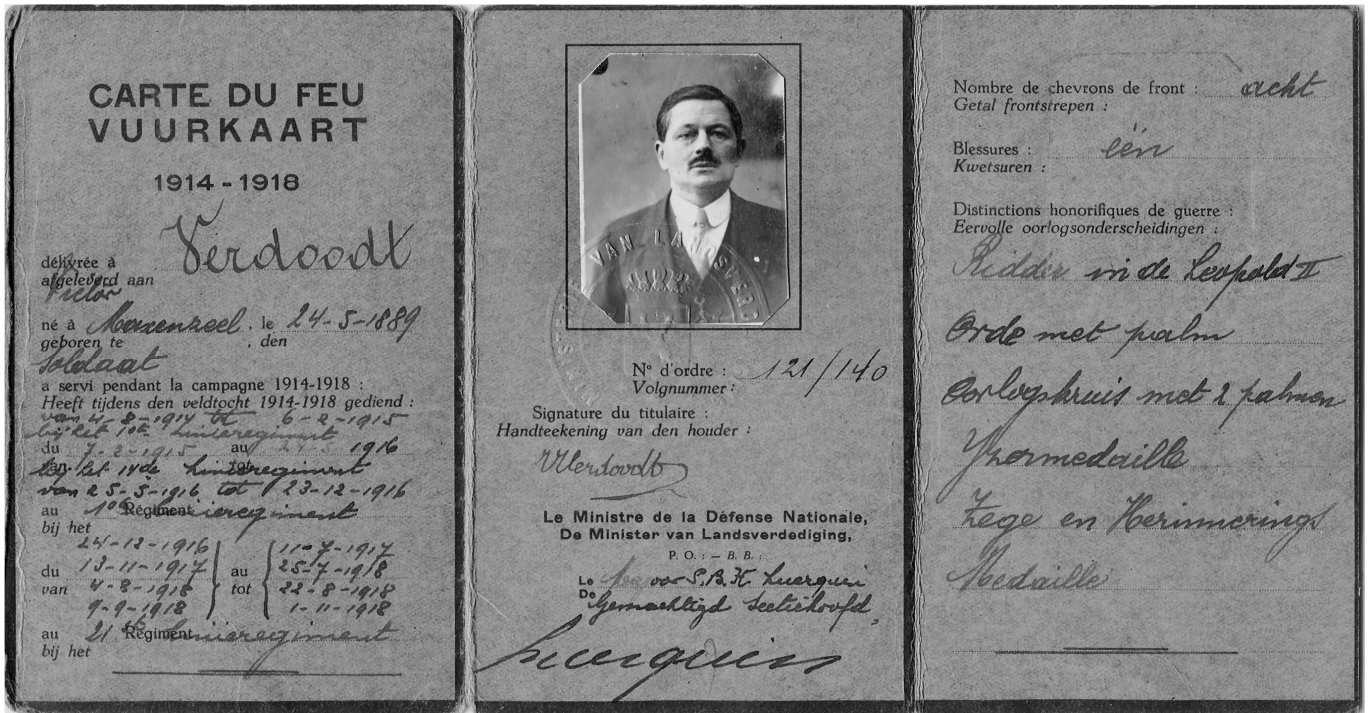 CARTE DU FEU
VUURKAART
1914-1918
délivrée à Verdoodt
afgeleverd aan
Victor
né à Maxenzeel, le 24-5-1889
geboren te , den
Soldaat
a servi pendant la campagne 1914-1918 :
Heeft tijdens den veldtocht 1914-1918 gediend :
van 4-8-1914 tot 6-2-1915
bij het 10de Linieregiment
du 7-2-1915 au 24-5 1916
van tot
bij het 14de Linieregiment
van 25-5-1916 tot 23-12-1916
au Régiment Linieregiment
bij het
24-12-1916 11-7-1917
13-11-1917 25-7-1918
du au
van 4-8-1918 tot 22-8-1918
9-9-1918 1-11-1918
au 21 Régiment Linieregiment
bij het
VAN LANDSVERD
MINIST
N° d'ordre : 121/140
Volgnummer :
Signature du titulaire :
Handteekening van den houder :
VVerdoodt
Le Ministre de la Défense Nationale,
De Minister van Landsverdediging,
P. O. : — B. B. :
Le voor S.B.H. Lucrquin
De Gemachtigd Sectiehoofd,
Nombre de chevrons de front : acht
Getal frontstrepen :
Blessures : één
Kwetsuren :
Distinctions honorifiques de guerre :
Eervolle oorlogsonderscheidingen :
Ridder in de Leopold II
Orde met palm
Oorlogskruis met 2 palmen
Yzermedaille
Zege en Herinnerings
Medaille